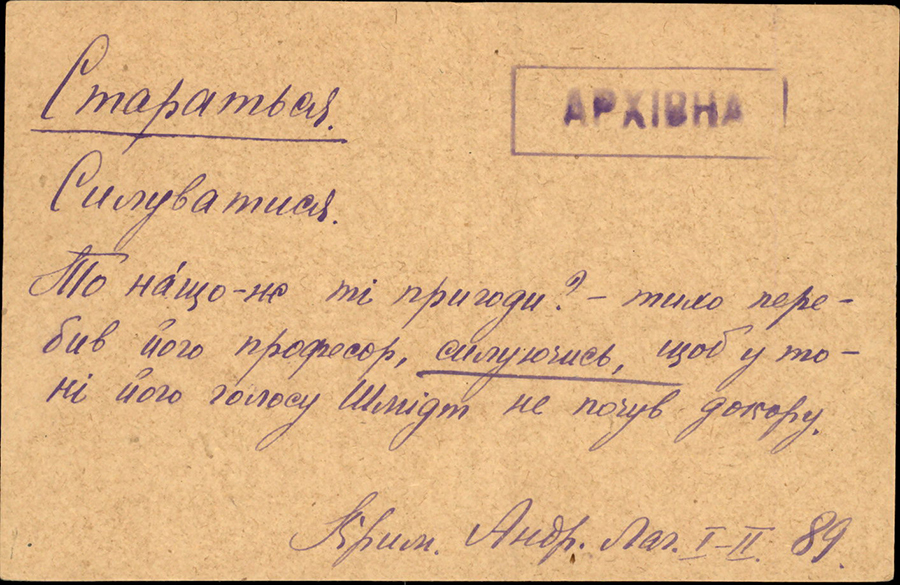 Стараться.
АРХІВНА
Силуватися.
То на́що-ж ті пригоди? – тихо пере-
бив його професор, силуючись, щоб у то-
ні його голосу Шмідт не почув докору.
Крим. Андр. Лаг. I–II. 89.